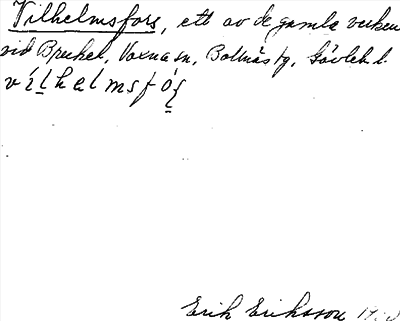 Vilhelmsfors, ett av de gamla verken
vid Bruket, Voxna sn, Bollnäs tg, Gävleb. l.
vílhelmsfo̱ṣ
Erik Eriksson